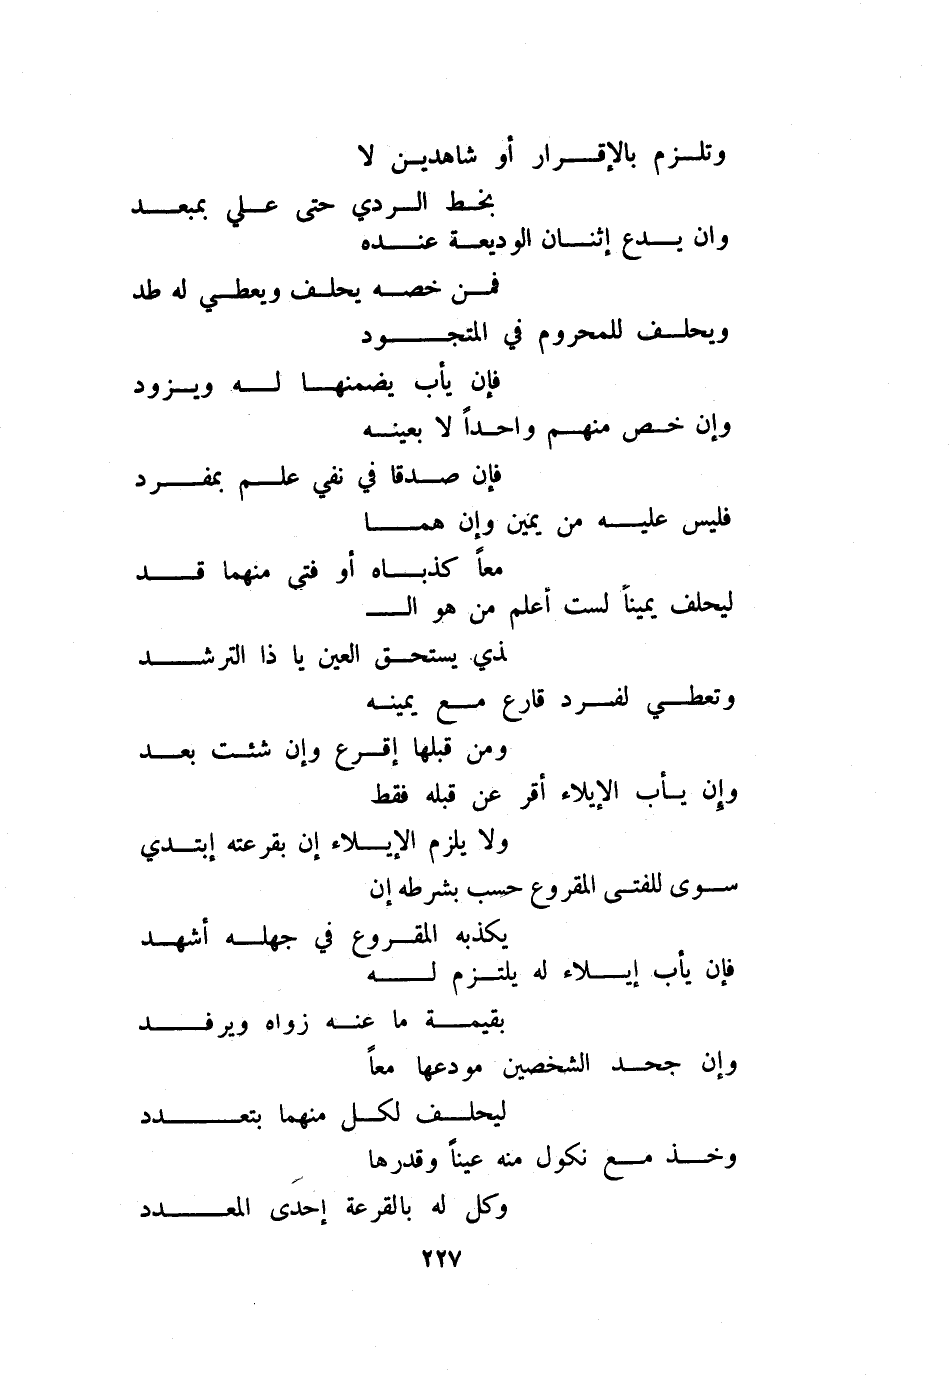 وتلزم بالإقرار أو شاهدين لا
بخط الردي حتى علي بمبعد
وان يدع إثنان الوديعة عنده
فمن خصه يحلف ويعطي له طد
ويحلف للمحروم في المتجود
فإن يأب يضمنها له ويزود
وإن خص منهم واحداً لا بعينه
فإن صدقا في نفي علم بمفرد
فليس عليه من يمين وإن هما
معاً كذباه أو فتى منهما قد
ليحلف يميناً لست أعلم من هو الـ
لذي يستحق العين يا ذا الترشد
وتعطي لفرد قارع مع يمينه
ومن قبلها إقرع وإن شئت بعد
وإن يأب الإيلاء أقر عن قبله فقط
ولا يلزم الإيلاء إن بقرعته إبتدي
سوى للفتى المقروع حسب بشرطه إن
يكذبه المقروع في جهله أشهد
فإن يأب إيلاء له يلتزم له
بقيمة ما عنه زواه ويرفد
وإن جحد الشخصين مودعها معاً
ليحلف لكل منهما بتعدد
وخذ مع نكول منه عيناً وقدرها
وكل له بالقرعة إحدى المعدد
٢٢٧